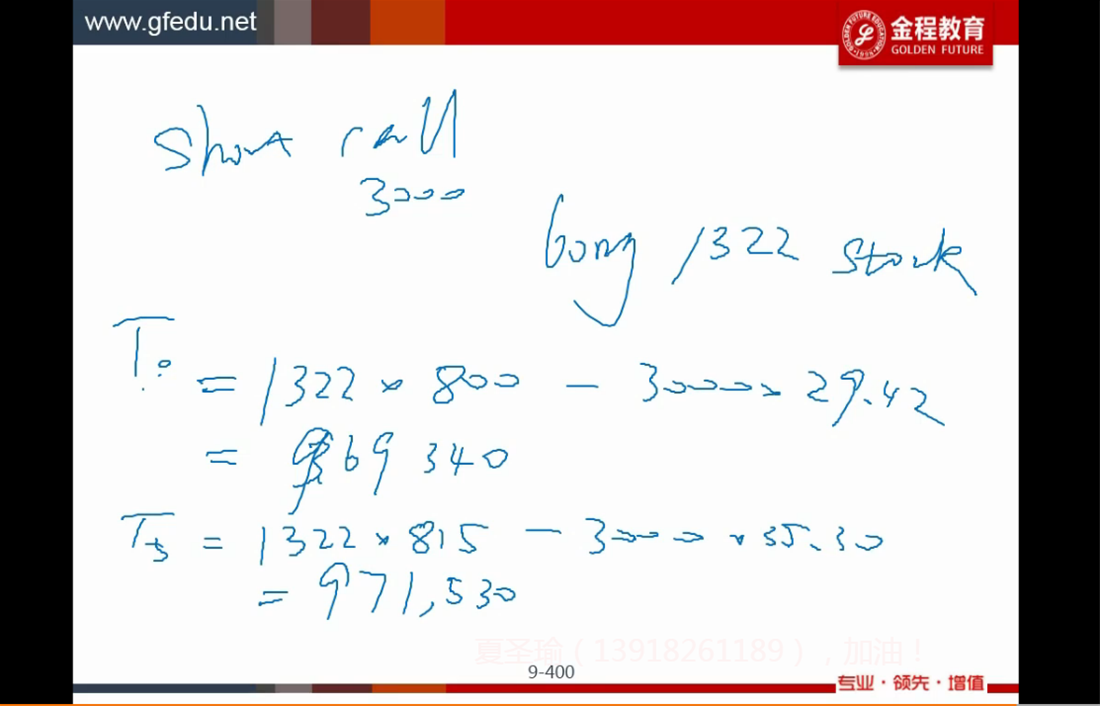 www.gfedu.net
金程教育
GOLDEN FUTURE
Short call
3000
long 1322 stock
T₀
= 1322 × 800 − 3000 × 29.42
= 969 340
T₅ = 1322 × 815 − 3000 × 35.30
= 971,530
夏圣瑜（13918261189），加油！
9-400
专业·领先·增值